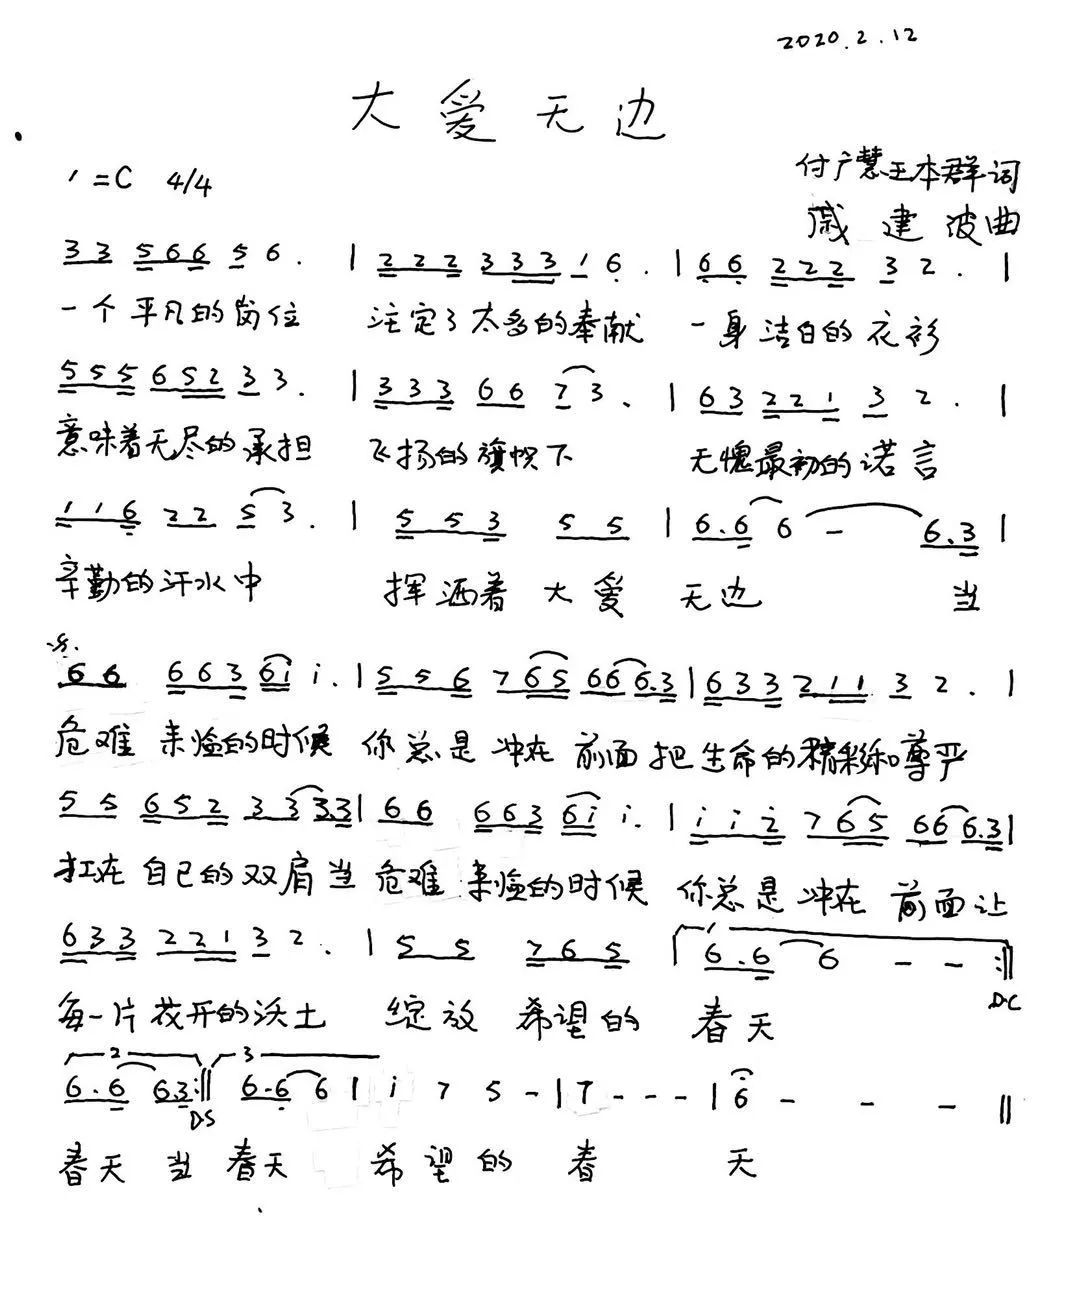 2020.2.12
大爱无边
1=C 4/4
付广慧王本群词
戚建波曲
3 3 5 6 6 5 6 . | 2 2 2 3 3 3 1 6 . | 6 6 2 2 2 3 2 . |
一个平凡的岗位 注定了太多的奉献 一身洁白的衣衫
5 5 5 6 5 2 3 3 . | 3 3 3 6 6 7 3 . | 6 3 2 2 1 3 2 . |
意味着无尽的承担 飞扬的旗帜下 无愧最初的诺言
1 1 6 2 2 5 3 . | 5 5 3 5 5 | 6 . 6 6 - 6 . 3 |
辛勤的汗水中 挥洒着大爱无边 当
6 6 6 6 3 6 i i . | 5 5 6 7 6 5 6 6 6 . 3 | 6 3 3 2 1 1 3 2 . |
危难来临的时候 你总是冲在前面把生命的精彩和尊严
5 5 6 5 2 3 3 3 . 3 | 6 6 6 6 3 6 i i . | i i 2 7 6 5 6 6 6 . 3 |
扛在自己的双肩当危难来临的时候 你总是冲在前面让
6 3 3 2 2 1 3 2 . | 5 5 7 6 5 | 1 6 . 6 6 - - :|| DC
每一片花开的沃土 绽放希望的春天
2 6 . 6 6 3 :|| DS 3 6 . 6 6 | i 7 5 - | 7 - - - | 6 - - - ||
春天当春天 希望的春天